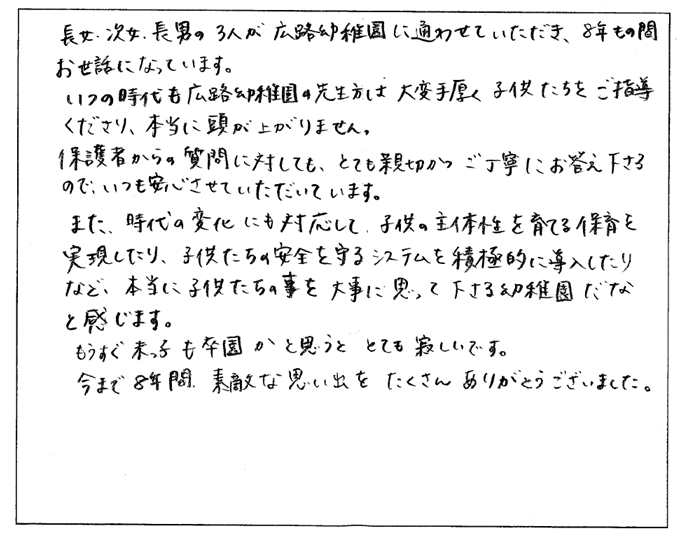 長女、次女、長男の3人が広路幼稚園に通わせていただき、8年もの間
お世話になっています。
いつの時代も広路幼稚園の先生方は大変手厚く子供たちをご指導
くださり、本当に頭が上がりません。
保護者からの質問に対しても、とても親切かつご丁寧にお答え下さる
ので、いつも安心させていただいています。
また、時代の変化にも対応して、子供の主体性を育てる保育を
実現したり、子供たちの安全を守るシステムを積極的に導入したり
など、本当に子供たちの事を大事に思って下さる幼稚園だな
と感じます。
もうすぐ末っ子も卒園かと思うととても寂しいです。
今まで8年間、素敵な思い出をたくさんありがとうございました。